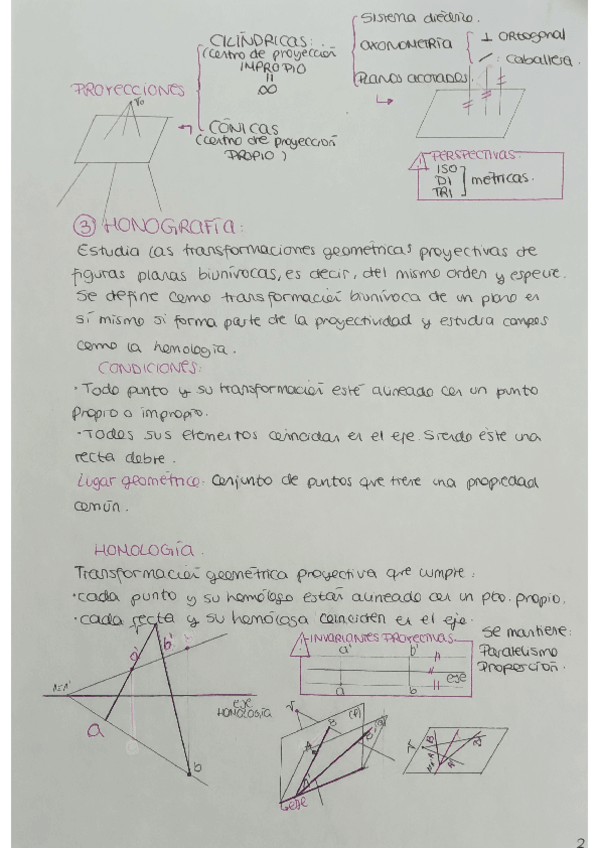 PROYECCIONES
V∞
CILÍNDRICAS:
(centro de proyección
IMPROPIO
=
∞
CÓNICAS
(centro de proyección
PROPIO)
Sistema diédrico.
AXONOMETRÍA
⊥ ORTOGONAL
Caballera.
PLANOS ACOTADOS
! PERSPECTIVAS:
ISO
DI
TRI
métricas.
③ HONOGRAFÍA:
Estudia las transformaciones geometricas proyectivas de
figuras planas biunívocas, es decir, del mismo orden y especie.
Se define como transformación biunívoca de un plano en
sí mismo si forma parte de la proyectividad y estudia campos
como la homología.
CONDICIONES:
· Todo punto y su transformación esté alineado con un punto
propio o impropio.
· Todos sus elementos coincidan en el eje. Siendo este una
recta doble.
Lugar geométrico: Conjunto de puntos que tiene una propiedad
común.
HOMOLOGÍA.
Transformación geométrica proyectiva que cumple:
· cada punto y su homólogo están alineado con un pto. propio.
· cada recta y su homóloga coinciden en el eje.
V
a'
b'
a
b
eje
HOMOLOGÍA
! INVARIANTES PROYECTIVAS.
a'
b'
eje
a
b
Se mantiene:
Paralelismo
Proporción.
V
B
A
eje
V
B
2